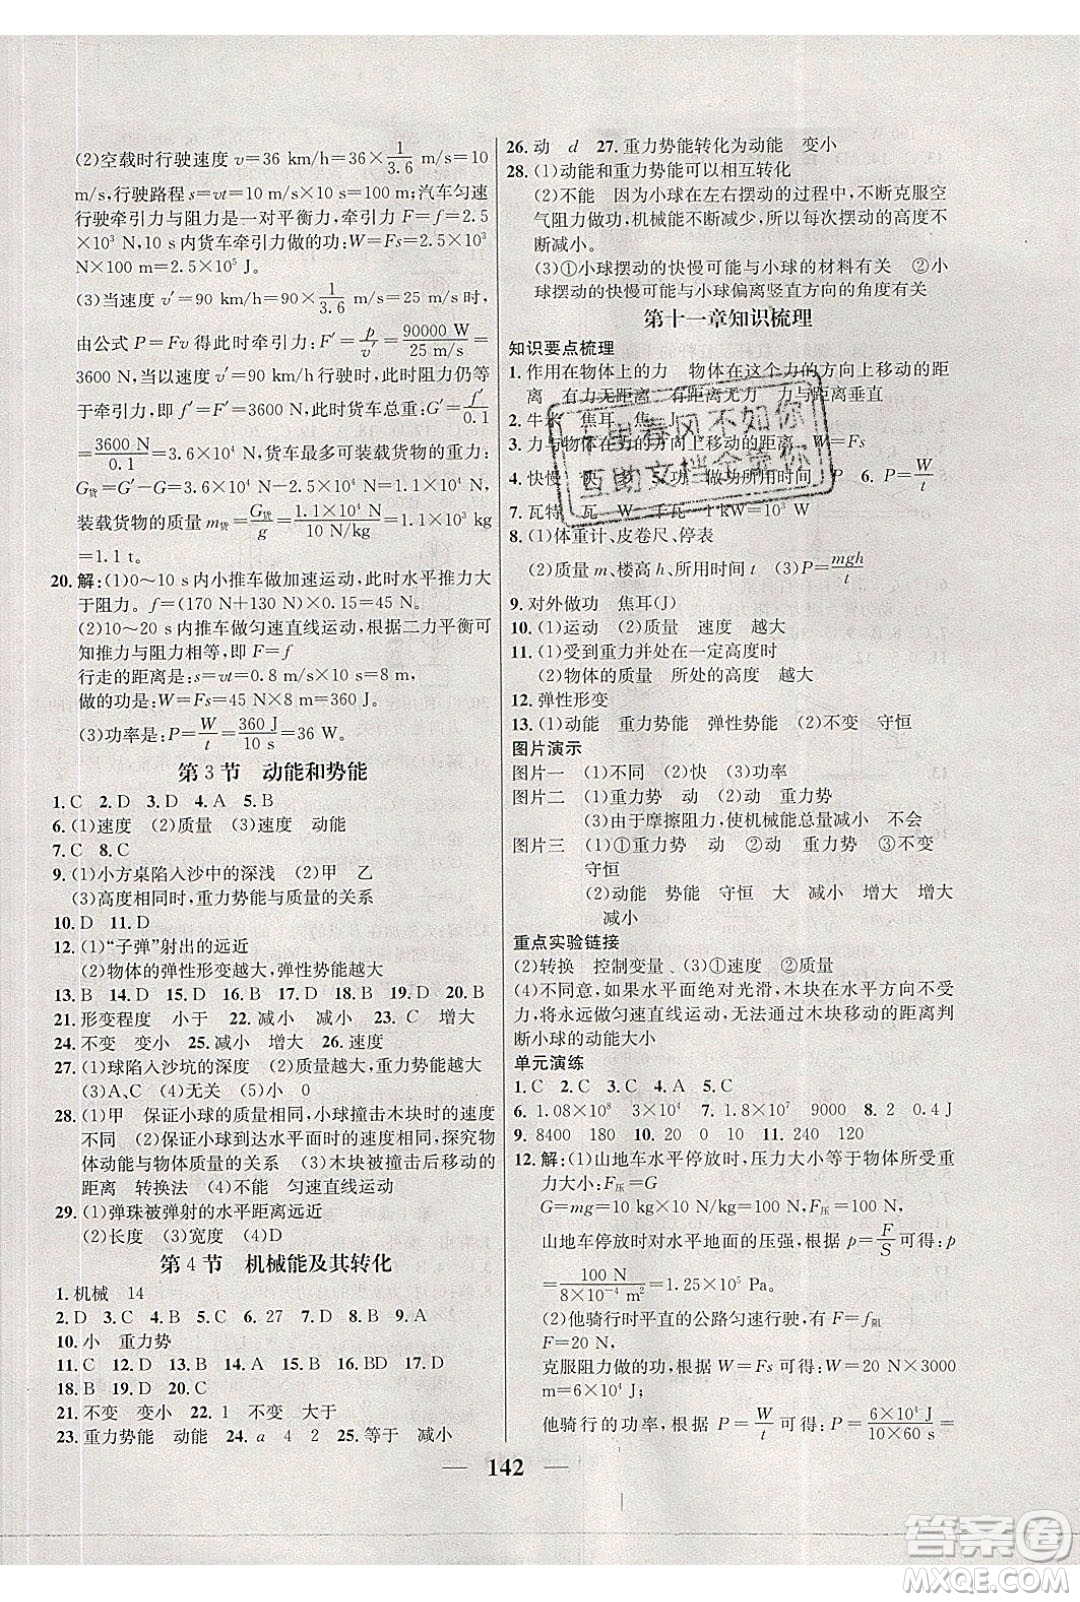 (2)空载时行驶速度 v=36 km/h=36×1/3.6 m/s=10
m/s,行驶路程 s=vt=10 m/s×10 s=100 m;汽车匀速
行驶牵引力与阻力是一对平衡力,牵引力 F=f=2.5
×10³ N,10 s内货车牵引力做的功:W=Fs=2.5×10³
N×100 m=2.5×10⁵ J。
(3)当速度 v′=90 km/h=90×1/3.6 m/s=25 m/s时,
由公式 P=Fv 得此时牵引力:F′=p/v′=90000 W/25 m/s=
3600 N,当以速度 v′=90 km/h行驶时,此时阻力仍等
于牵引力,即 f′=F′=3600 N,此时货车总重:G′=f′/0.1
=3600 N/0.1=3.6×10⁴ N,货车最多可装载货物的重力:
G货=G′-G=3.6×10⁴ N-2.5×10⁴ N=1.1×10⁴ N,
装载货物的质量 m货=G货/g=1.1×10⁴ N/10 N/kg=1.1×10³ kg
=1.1 t。
20. 解:(1)0～10 s内小推车做加速运动,此时水平推力大
于阻力。f=(170 N+130 N)×0.15=45 N
(2)10～20 s内推车做匀速直线运动,根据二力平衡可
知推力与阻力相等,即 F=f
行走的距离是:s=vt=0.8 m/s×10 s=8 m,
做的功是:W=Fs=45 N×8 m=360 J,
(3)功率是:P=W/t=360 J/10 s=36 W。
第3节 动能和势能
1. C 2. D 3. D 4. A 5. B
6. (1)速度 (2)质量 (3)速度 动能
7. C 8. C
9. (1)小方桌陷入沙中的深浅 (2)甲 乙
(3)高度相同时,重力势能与质量的关系
10. D 11. D
12. (1)“子弹”射出的远近
(2)物体的弹性形变越大,弹性势能越大
13. B 14. D 15. B 16. B 17. B 18. D 19. D 20. B
21. 形变程度 小于 22. 减小 减小 23. C 增大
24. 不变 变小 25. 减小 增大 26. 速度
27. (1)球陷入沙坑的深度 (2)质量越大,重力势能越大
(3)A、C (4)无关 (5)小 0
28. (1)甲 保证小球的质量相同,小球撞击木块时的速度
不同 (2)保证小球到达水平面时的速度相同,探究物
体动能与物体质量的关系 (3)木块被撞击后移动的
距离 转换法 (4)不能 匀速直线运动
29. (1)弹珠被弹射的水平距离远近
(2)长度 (3)宽度 (4)D
第4节 机械能及其转化
1. 机械 14
2. D 3. C 4. B 5. C 6. 27 7. C 8. C 9. A
10. 小 重力势
11. C 12. D 13. D 14. A 15. B 16. BD 17. D
18. B 19. D 20. C
21. 不变 变小 22. 1 不变 大于
23. 重力势能 动能 24. a 4 2 25. 等于 减小
26. 动 d 27. 重力势能转化为动能 变小
28. (1)动能和重力势能可以相互转化
(2)不能 因为小球在左右摆动的过程中,不断克服空
气阻力做功,机械能不断减少,所以每次摆动的高度不
断减小。
(3)①小球摆动的快慢可能与小球的材料有关 ②小
球摆动的快慢可能与小球偏离竖直方向的角度有关
第十一章知识梳理
知识要点梳理
1. 作用在物体上的力 物体在这个力的方向上移动的距
离 有力无距离 有距离无力 力与距离垂直
2. 牛·米 焦耳 焦 J
3. 力与物体在力的方向上移动的距离 W=Fs
4. 快慢 5. 功 做功所用时间 P 6. P=W/t
7. 瓦特 瓦 W 千瓦 1 kW=10³ W
8. (1)体重计、皮卷尺、停表
(2)质量 m、楼高 h、所用时间 t (3)P=mgh/t
9. 对外做功 焦耳(J)
10. (1)运动 (2)质量 速度 越大
11. (1)受到重力并处在一定高度时
(2)物体的质量 所处的高度 越大
12. 弹性形变
13. (1)动能 重力势能 弹性势能 (2)不变 守恒
图片演示
图片一 (1)不同 (2)快 (3)功率
图片二 (1)重力势 动 (2)动 重力势
(3)由于摩擦阻力,使机械能总量减小 不会
图片三 (1)①重力势 动 ②动 重力势 ③不变
守恒
(2)动能 势能 守恒 大 减小 增大 增大
减小
重点实验链接
(2)转换 控制变量 (3)①速度 ②质量
(4)不同意,如果水平面绝对光滑,木块在水平面上运
动,将永远做匀速直线运动,无法通过木块移动的距离
判断小球的动能大小
单元演练
1. C 2. C 3. B 4. A 5. C
6. 1.08×10⁸ 3×10⁴ 7. 1.2×10⁵ 9000 8. 2 0.4 J
9. 8400 180 10. 20 0 10 11. 240 120
12. 解:(1)山地车水平停放时,压力大小等于物体所受重
力大小,F压=G
G=mg=10 kg×10 N/kg=100 N,F压=100 N
山地车停放时对水平地面的压强,根据 p=F/S 可得:p
=100 N/8×10⁻⁴ m²=1.25×10⁵ Pa。
(2)他骑行时平直的公路匀速行驶,有 F=f阻
F=20 N,
克服阻力做的功,根据 W=Fs 可得:W=20 N×3000
m=6×10⁴ J;
他骑行的功率,根据 P=W/t 可得:P=6×10⁴ J/10×60 s=
— 142 —
千里春风不如你
互助文档全靠你
答案圈
MXQE.COM